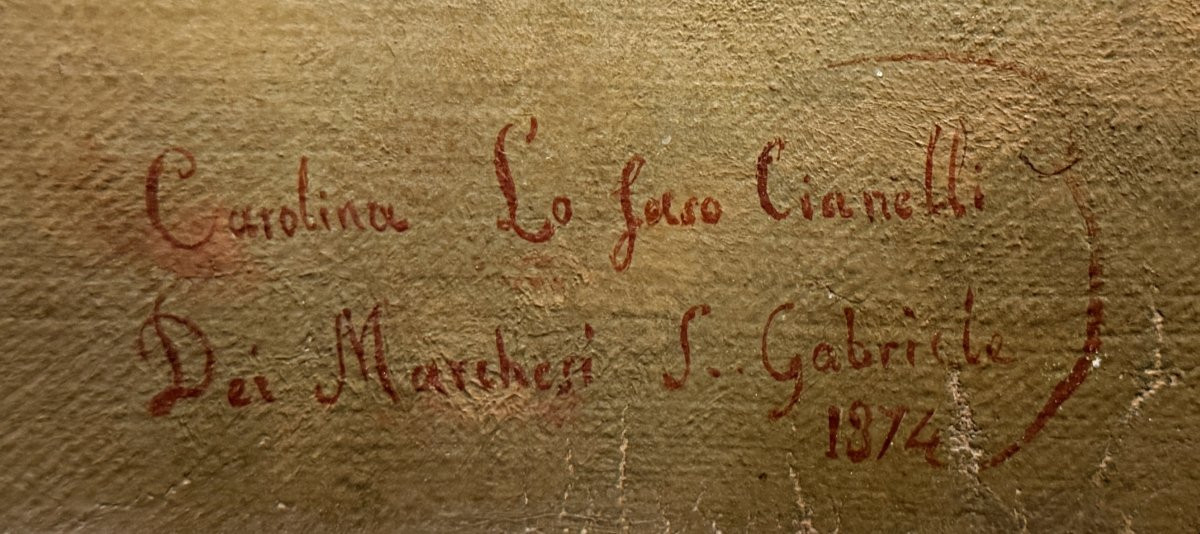 Carolina Lo Faso Cianelli
Dei Marchesi S.. Gabriele
1874